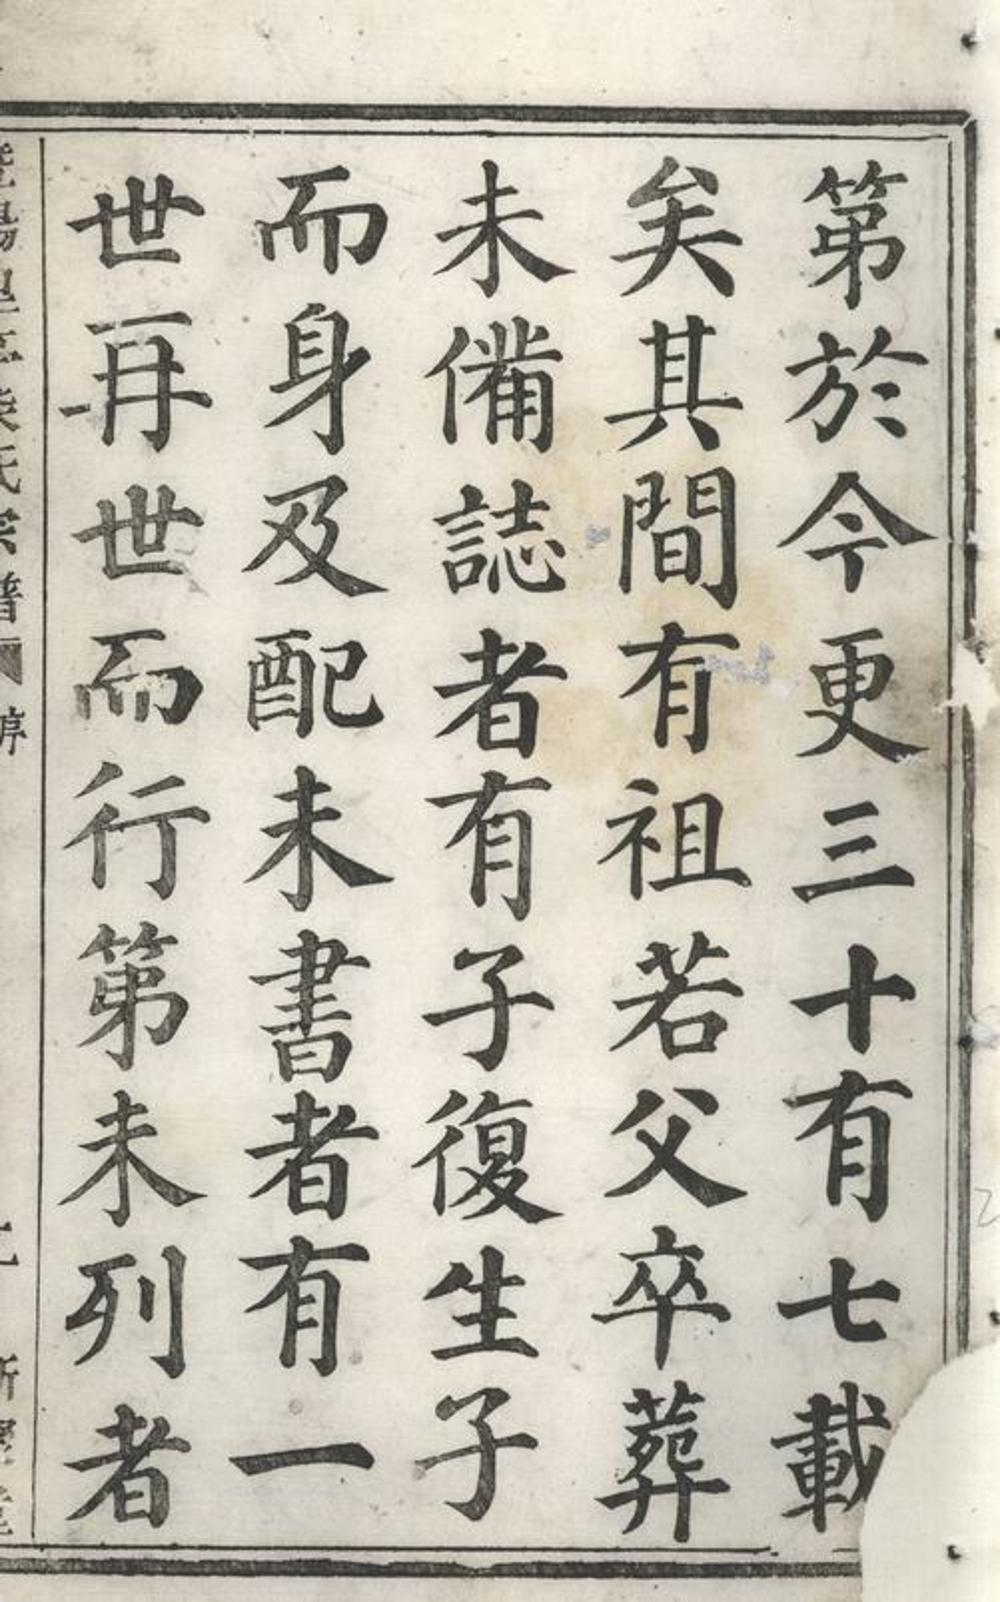 第於今更三十有七載
矣其間有祖若父卒葬
未備誌者有子復生子
而身及配未書者有一
世再世而行第未列者
氏宗譜 序